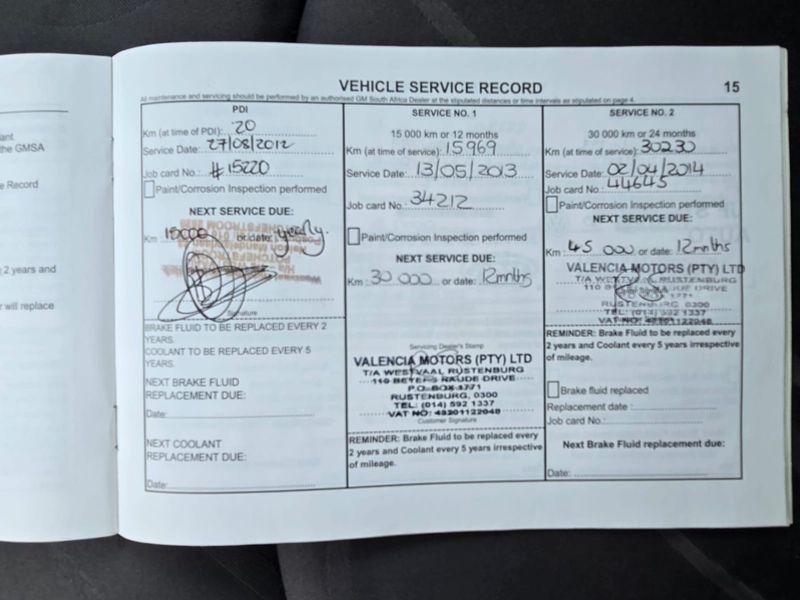 ant.
the GMSA
e Record
2 years and
r will replace
VEHICLE SERVICE RECORD
15
All maintenance and servicing should be performed by an authorised GM South Africa Dealer at the stipulated distances or time intervals as stipulated on page 4.
PDI
Km (at time of PDI): 20
Service Date: 27/08/2012
Job card No.: #15220
Paint/Corrosion Inspection performed
NEXT SERVICE DUE:
Km 15000 or date: yearly.
Signature
BRAKE FLUID TO BE REPLACED EVERY 2
YEARS.
COOLANT TO BE REPLACED EVERY 5
YEARS.
NEXT BRAKE FLUID
REPLACEMENT DUE:
Date:
NEXT COOLANT
REPLACEMENT DUE:
Date:
SERVICE NO. 1
15 000 km or 12 months
Km (at time of service): 15969
Service Date: 13/05/2013
Job card No.: 34212
Paint/Corrosion Inspection performed
NEXT SERVICE DUE:
Km : 30 000 or date: 12mnths
Servicing Dealer's Stamp
VALENCIA MOTORS (PTY) LTD
T/A WESTVAAL RUSTENBURG
110 BEYERS NAUDE DRIVE
P.O. BOX 1771
RUSTENBURG, 0300
TEL: (014) 592 1337
VAT NO: 48201122048
Customer Signature
REMINDER: Brake Fluid to be replaced every
2 years and Coolant every 5 years irrespective
of mileage.
SERVICE NO. 2
30 000 km or 24 months
Km (at time of service): 30230
Service Date: 02/04/2014
Job card No.: 44645
Paint/Corrosion Inspection performed
NEXT SERVICE DUE:
Km : 45 000 or date: 12mnths
VALENCIA MOTORS (PTY) LTD
T/A WESTVAAL RUSTENBURG
110 DRIVE
1771
RUSTENBURG, 0300
TEL: (014) 592 1337
VAT NO: 48201122048
REMINDER: Brake Fluid to be replaced every
2 years and Coolant every 5 years irrespective
of mileage.
Brake fluid replaced
Replacement date :
Job card No.:
Next Brake Fluid replacement due:
Date: